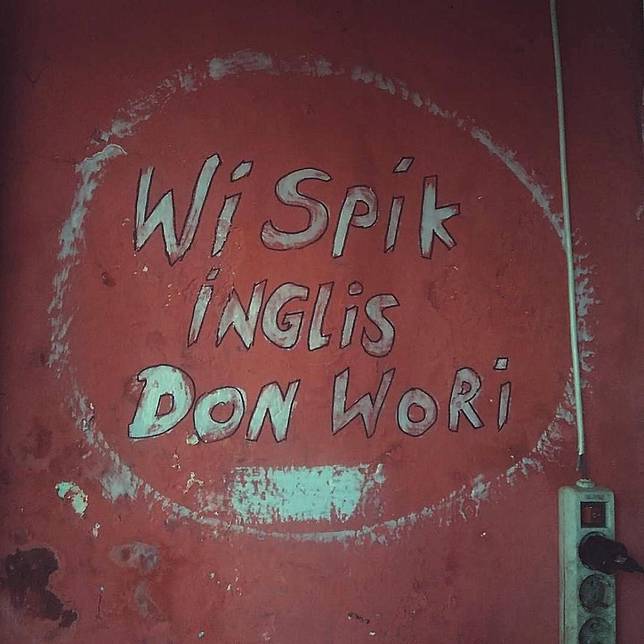 Wi Spik
iNGLiS
DoN WoRi